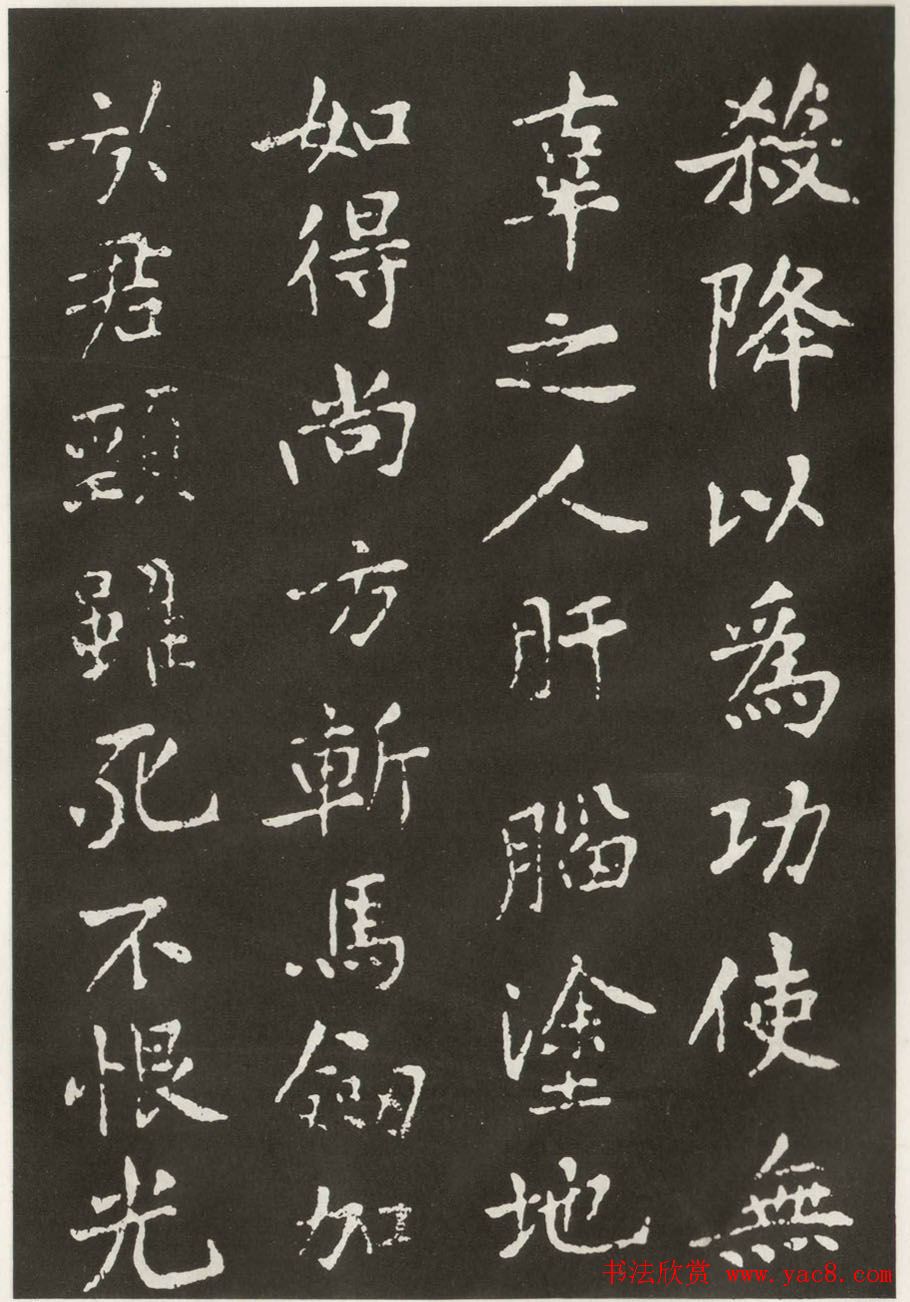 殺降以爲功使無
辜之人肝腦塗地
如得尚方斬馬劒加
於君頸雖死不恨光
书法欣赏 www.yac8.com